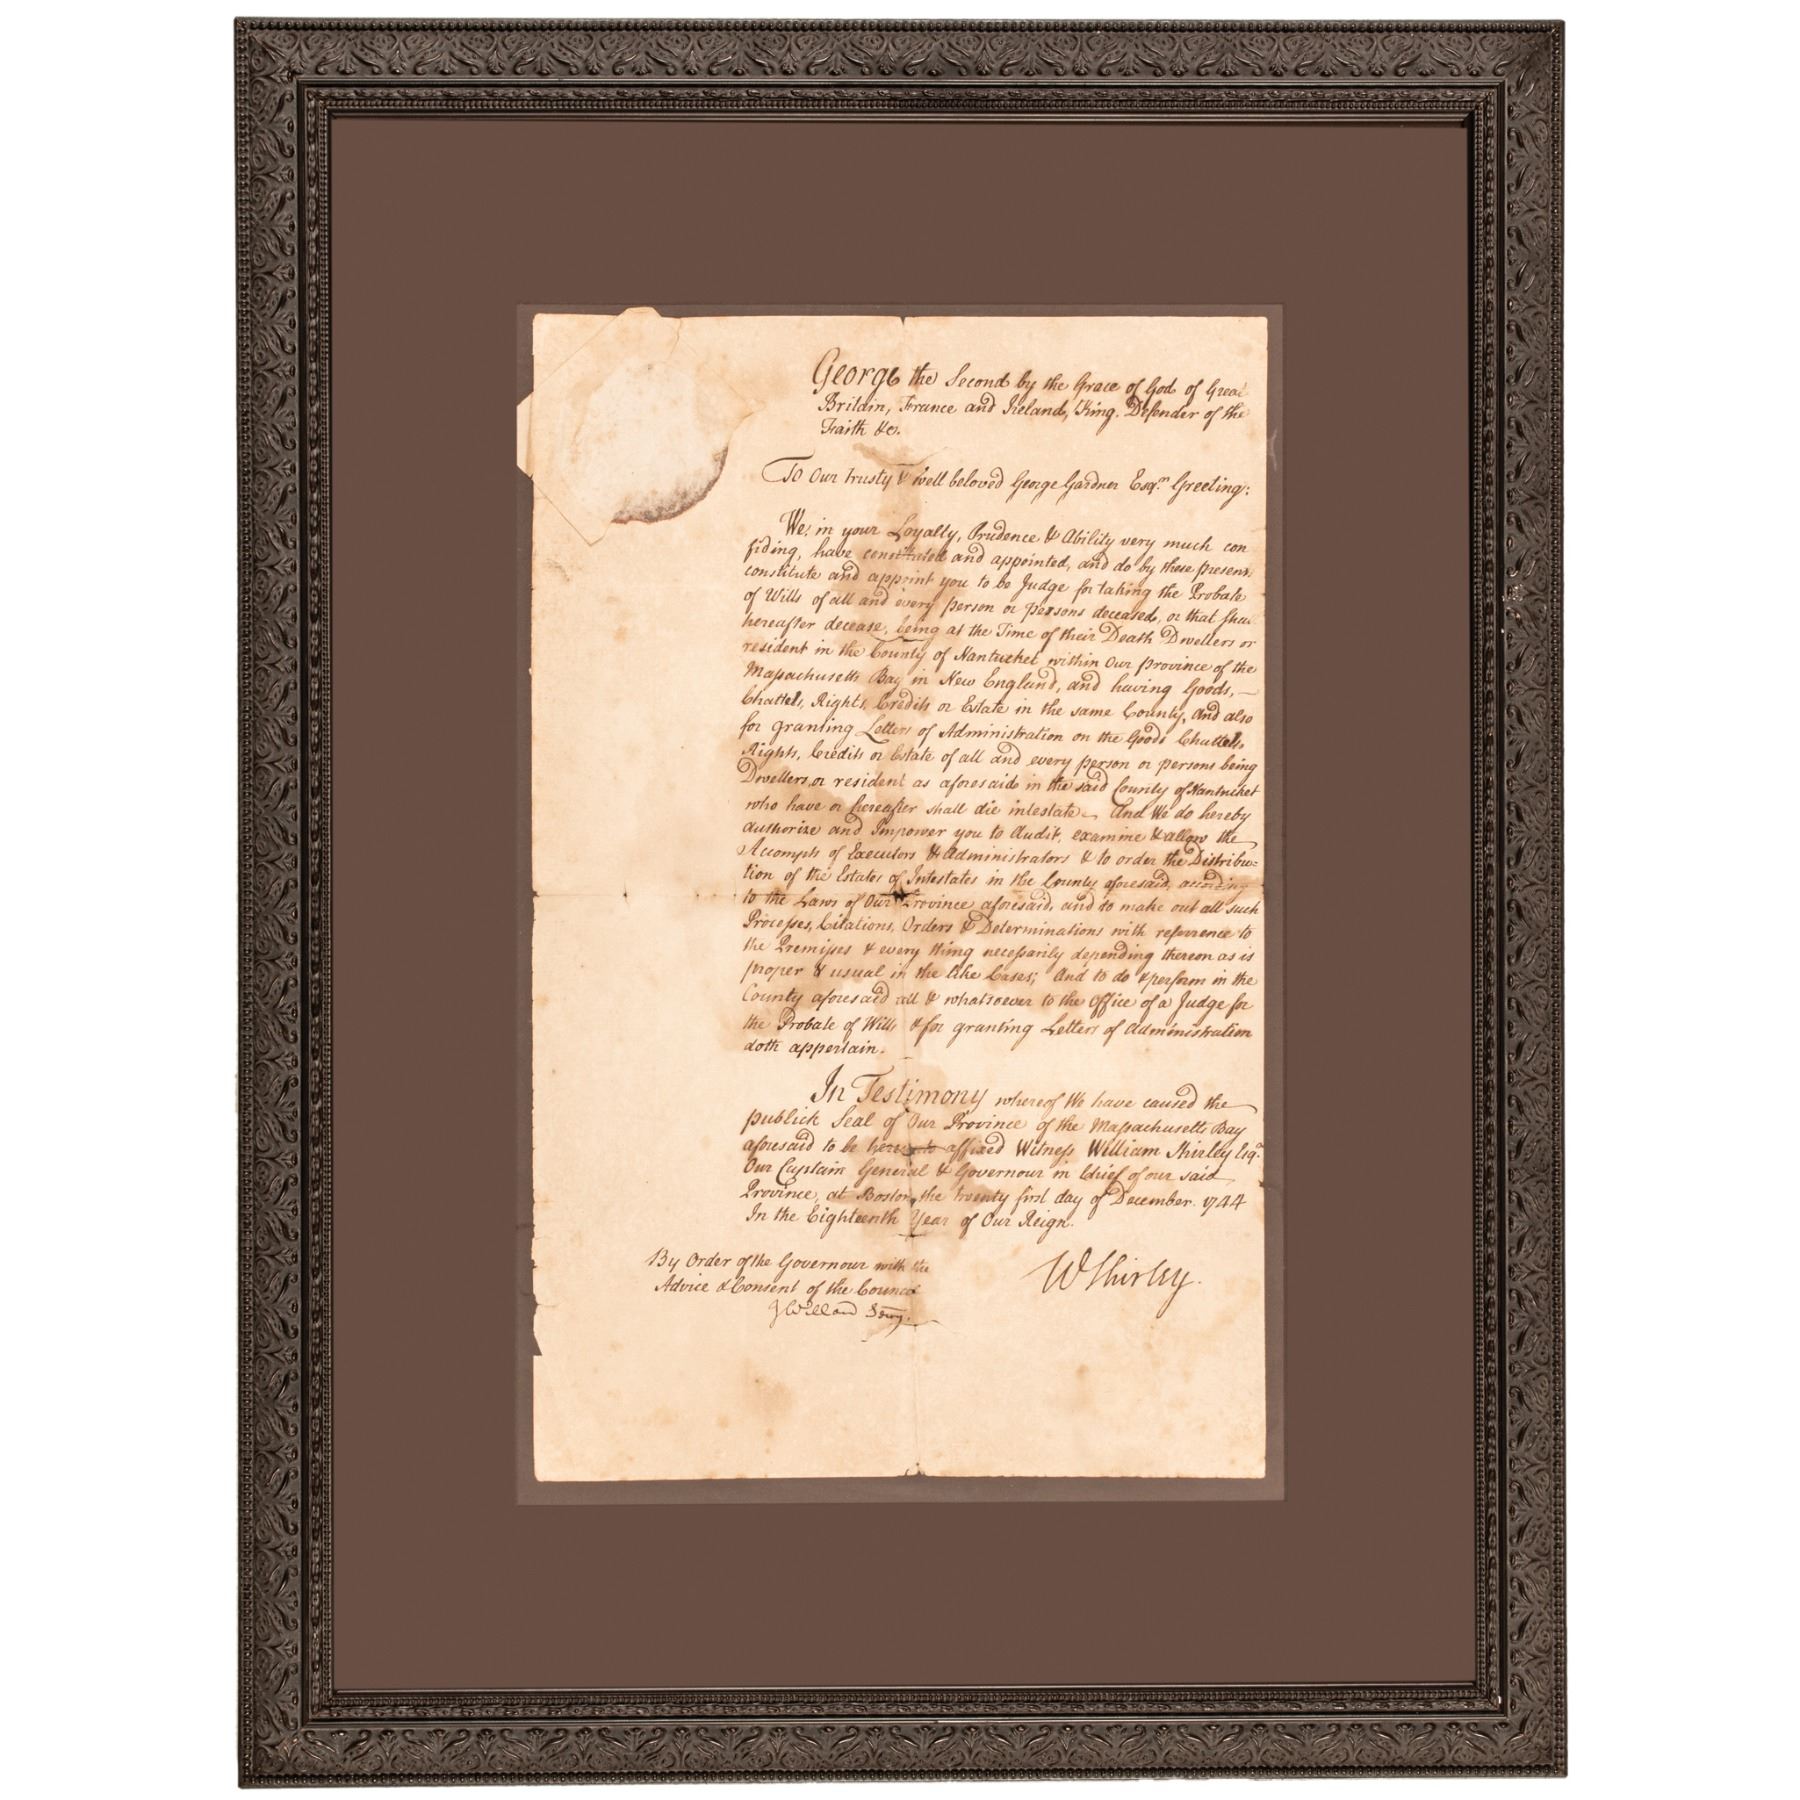 George the Second by the Grace of God of Great
Britain, France and Ireland, King. Defender of the
Faith &c.
To Our trusty & well beloved George Gardner Esqr. Greeting:
We, in your Loyalty, Prudence & Ability very much con
fiding, have constituted and appointed, and do by these presents
constitute and appoint you to be Judge for taking the Probate
of Wills of all and every person or persons deceased, or that shall
hereafter decease, being at the Time of their Death Dwellers or
resident in the County of Nantucket within Our province of the
Massachusetts Bay in New England, and having Goods, —
Chattels, Rights, Credits or Estate in the same County, And also
for granting Letters of Administration on the Goods Chattels,
Rights, Credits or Estate of all and every person or persons being
Dwellers, or resident as aforesaid in the said County of Nantucket
who have or hereafter shall die intestate – And We do hereby
authorize and Impower you to Audit, examine & allow the
Accompts of Executors & Administrators & to order the Distribu=
tion of the Estates of Intestates in the County aforesaid, according
to the Laws of Our Province aforesaid, and to make out all such
Processes, Citations, Orders & Determinations with referrence to
the Premisses & every thing necessarily depending thereon as is
proper & usual in the like Cases; And to do & perform in the
County aforesaid all & whatsoever to the Office of a Judge for
the Probate of Wills & for granting Letters of Administration
doth appertain.
In Testimony whereof We have caused the
publick Seal of Our Province of the Massachusetts Bay
aforesaid to be hereunto affixed Witness William Shirley Esqr.
Our Captain General & Governour in Chief of our said
Province, at Boston, the twenty first day of December. 1744
In the Eighteenth Year of Our Reign.
By Order of the Governour with the
Advice & Consent of the Council
WShirley.
J Willard Secry.